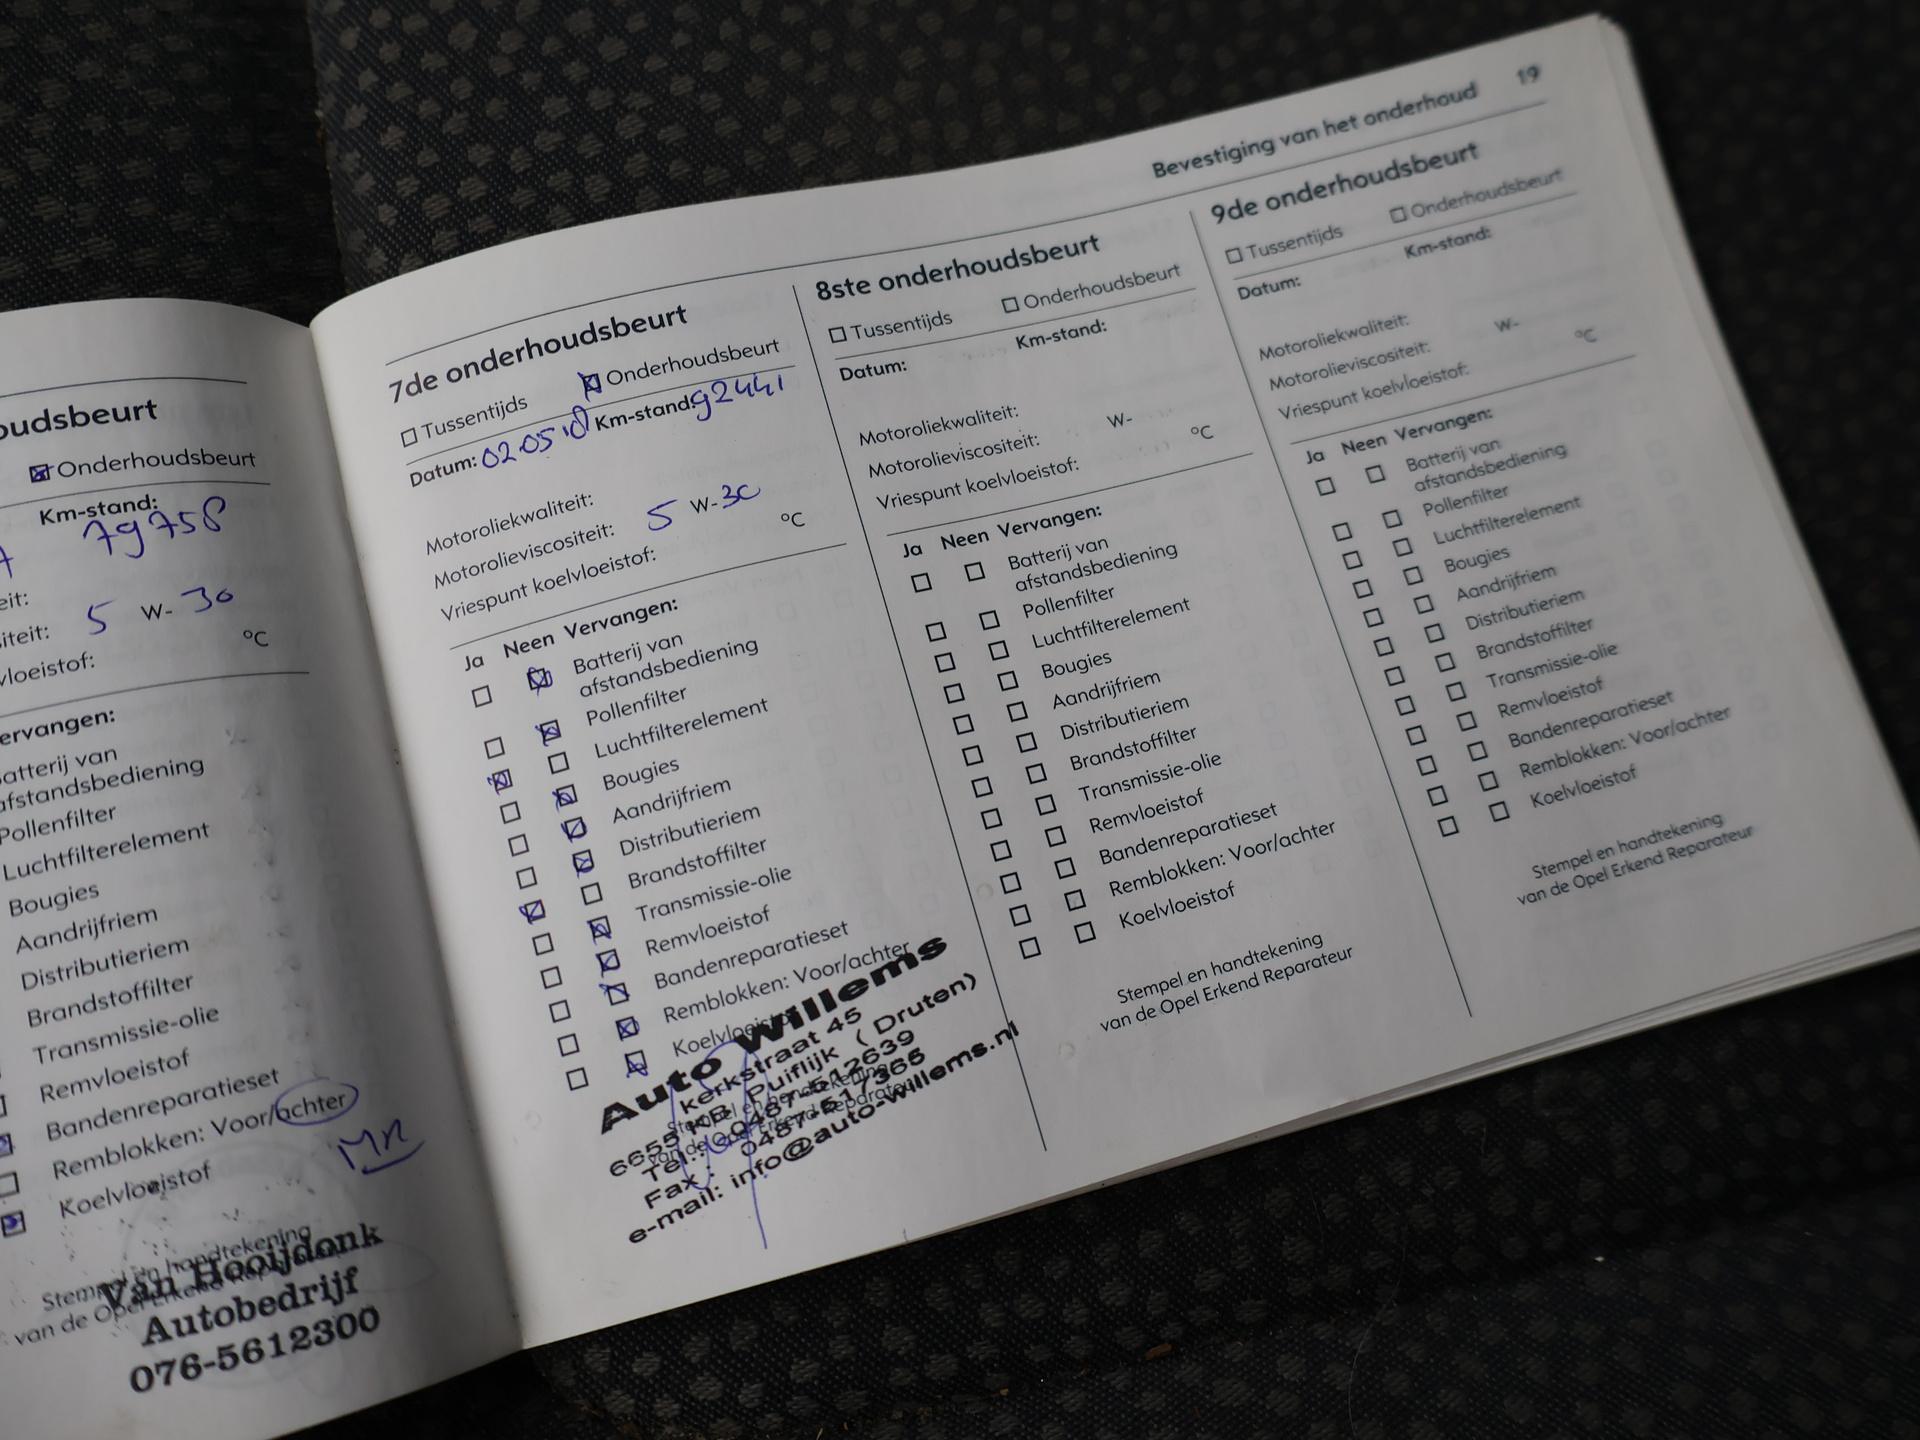 Bevestiging van het onderhoud 19
oudsbeurt
Onderhoudsbeurt
Km-stand:
79758
eit:
siteit: 5 W- 30
vloeistof: °C
ervangen:
Batterij van
afstandsbediening
Pollenfilter
Luchtfilterelement
Bougies
Aandrijfriem
Distributieriem
Brandstoffilter
Transmissie-olie
Remvloeistof
Bandenreparatieset
Remblokken: Voor/achter
Koelvloeistof
Stempel en handtekening
van de Opel Erkend
Van Hooijdonk
Autobedrijf
076-5612300
7de onderhoudsbeurt
Tussentijds Onderhoudsbeurt
Datum: 02.05 Km-stand: 92441
Motoroliekwaliteit:
Motorolieviscositeit: 5 W-30
Vriespunt koelvloeistof: °C
Ja Neen Vervangen:
Batterij van
afstandsbediening
Pollenfilter
Luchtfilterelement
Bougies
Aandrijfriem
Distributieriem
Brandstoffilter
Transmissie-olie
Remvloeistof
Bandenreparatieset
Remblokken: Voor/achter
Koelvloeistof
Stempel en handtekening
van de Opel Erkend Reparateur
Auto Willems
kerkstraat 45
6655 KB Puiflijk ( Druten)
Tel.: 0487-512639
Fax : 0487-517365
e-mail: info@auto-willems.nl
8ste onderhoudsbeurt
Tussentijds Onderhoudsbeurt
Datum: Km-stand:
Motoroliekwaliteit:
Motorolieviscositeit: W-
Vriespunt koelvloeistof: °C
Ja Neen Vervangen:
Batterij van
afstandsbediening
Pollenfilter
Luchtfilterelement
Bougies
Aandrijfriem
Distributieriem
Brandstoffilter
Transmissie-olie
Remvloeistof
Bandenreparatieset
Remblokken: Voor/achter
Koelvloeistof
Stempel en handtekening
van de Opel Erkend Reparateur
9de onderhoudsbeurt
Tussentijds Onderhoudsbeurt
Datum: Km-stand:
Motoroliekwaliteit:
Motorolieviscositeit: W-
Vriespunt koelvloeistof: °C
Ja Neen Vervangen:
Batterij van
afstandsbediening
Pollenfilter
Luchtfilterelement
Bougies
Aandrijfriem
Distributieriem
Brandstoffilter
Transmissie-olie
Remvloeistof
Bandenreparatieset
Remblokken: Voor/achter
Koelvloeistof
Stempel en handtekening
van de Opel Erkend Reparateur